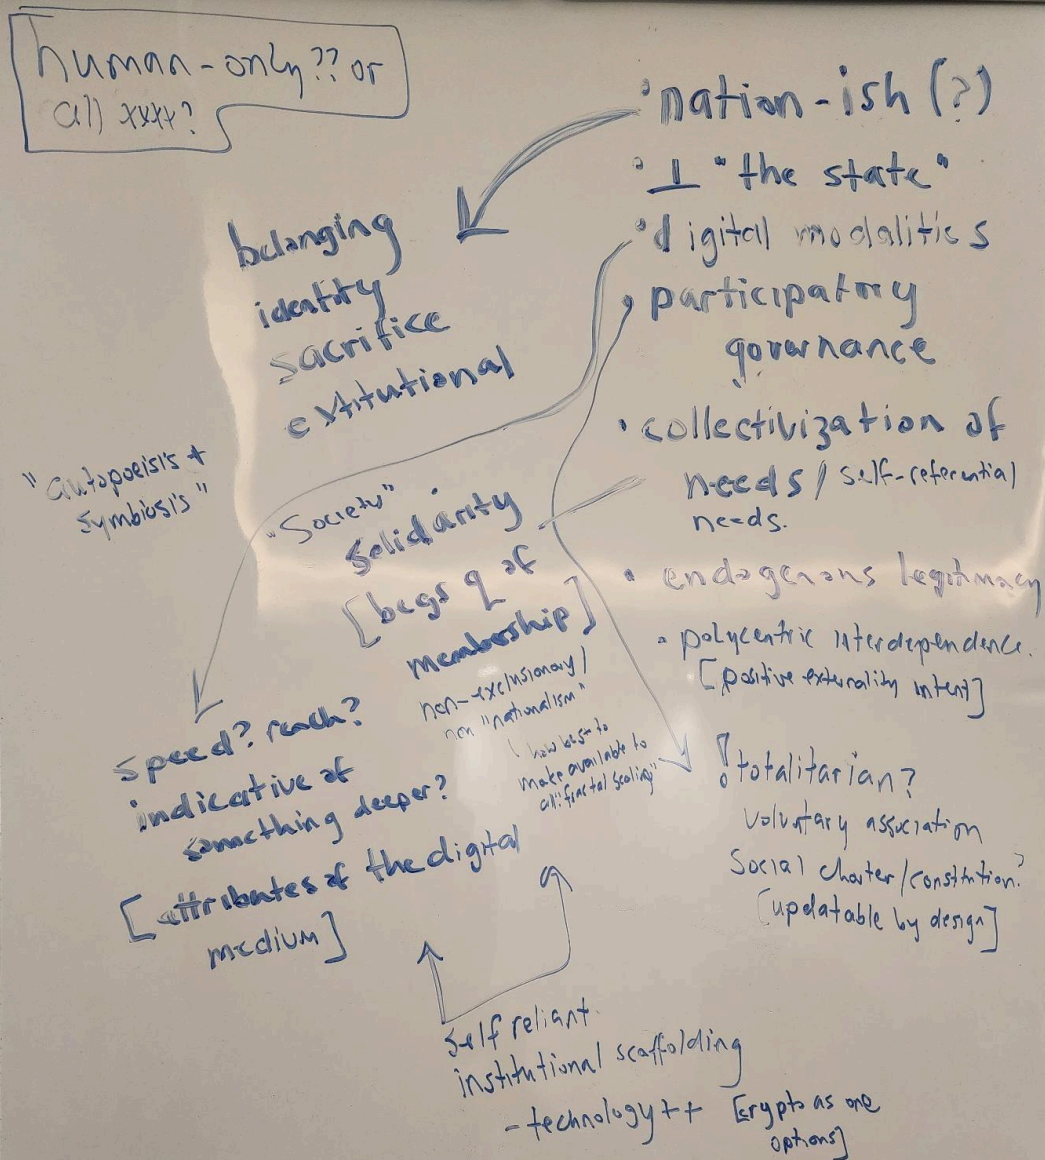 human-only?? or
all xxxx?
• nation-ish (?)
• ⊥ "the state"
• digital modalities
• participatory
governance
• collectivization of
needs / self-referential
needs.
• endogenous legitimacy
• polycentric interdependence.
[positive externality intent]
belonging
identity
sacrifice
extitutional
"autopoeisis +
symbiosis"
"Society"
Solidarity
[begs q of
membership]
non-exclusionary/
non "nationalism"
how best to
make available to
all: "fractal scaling"
speed? reach?
indicative of
something deeper?
[attributes of the digital
medium]
! totalitarian?
voluntary association
Social charter/constitution?
[updatable by design]
self reliant
institutional scaffolding
- technology++ [crypto as one
options]